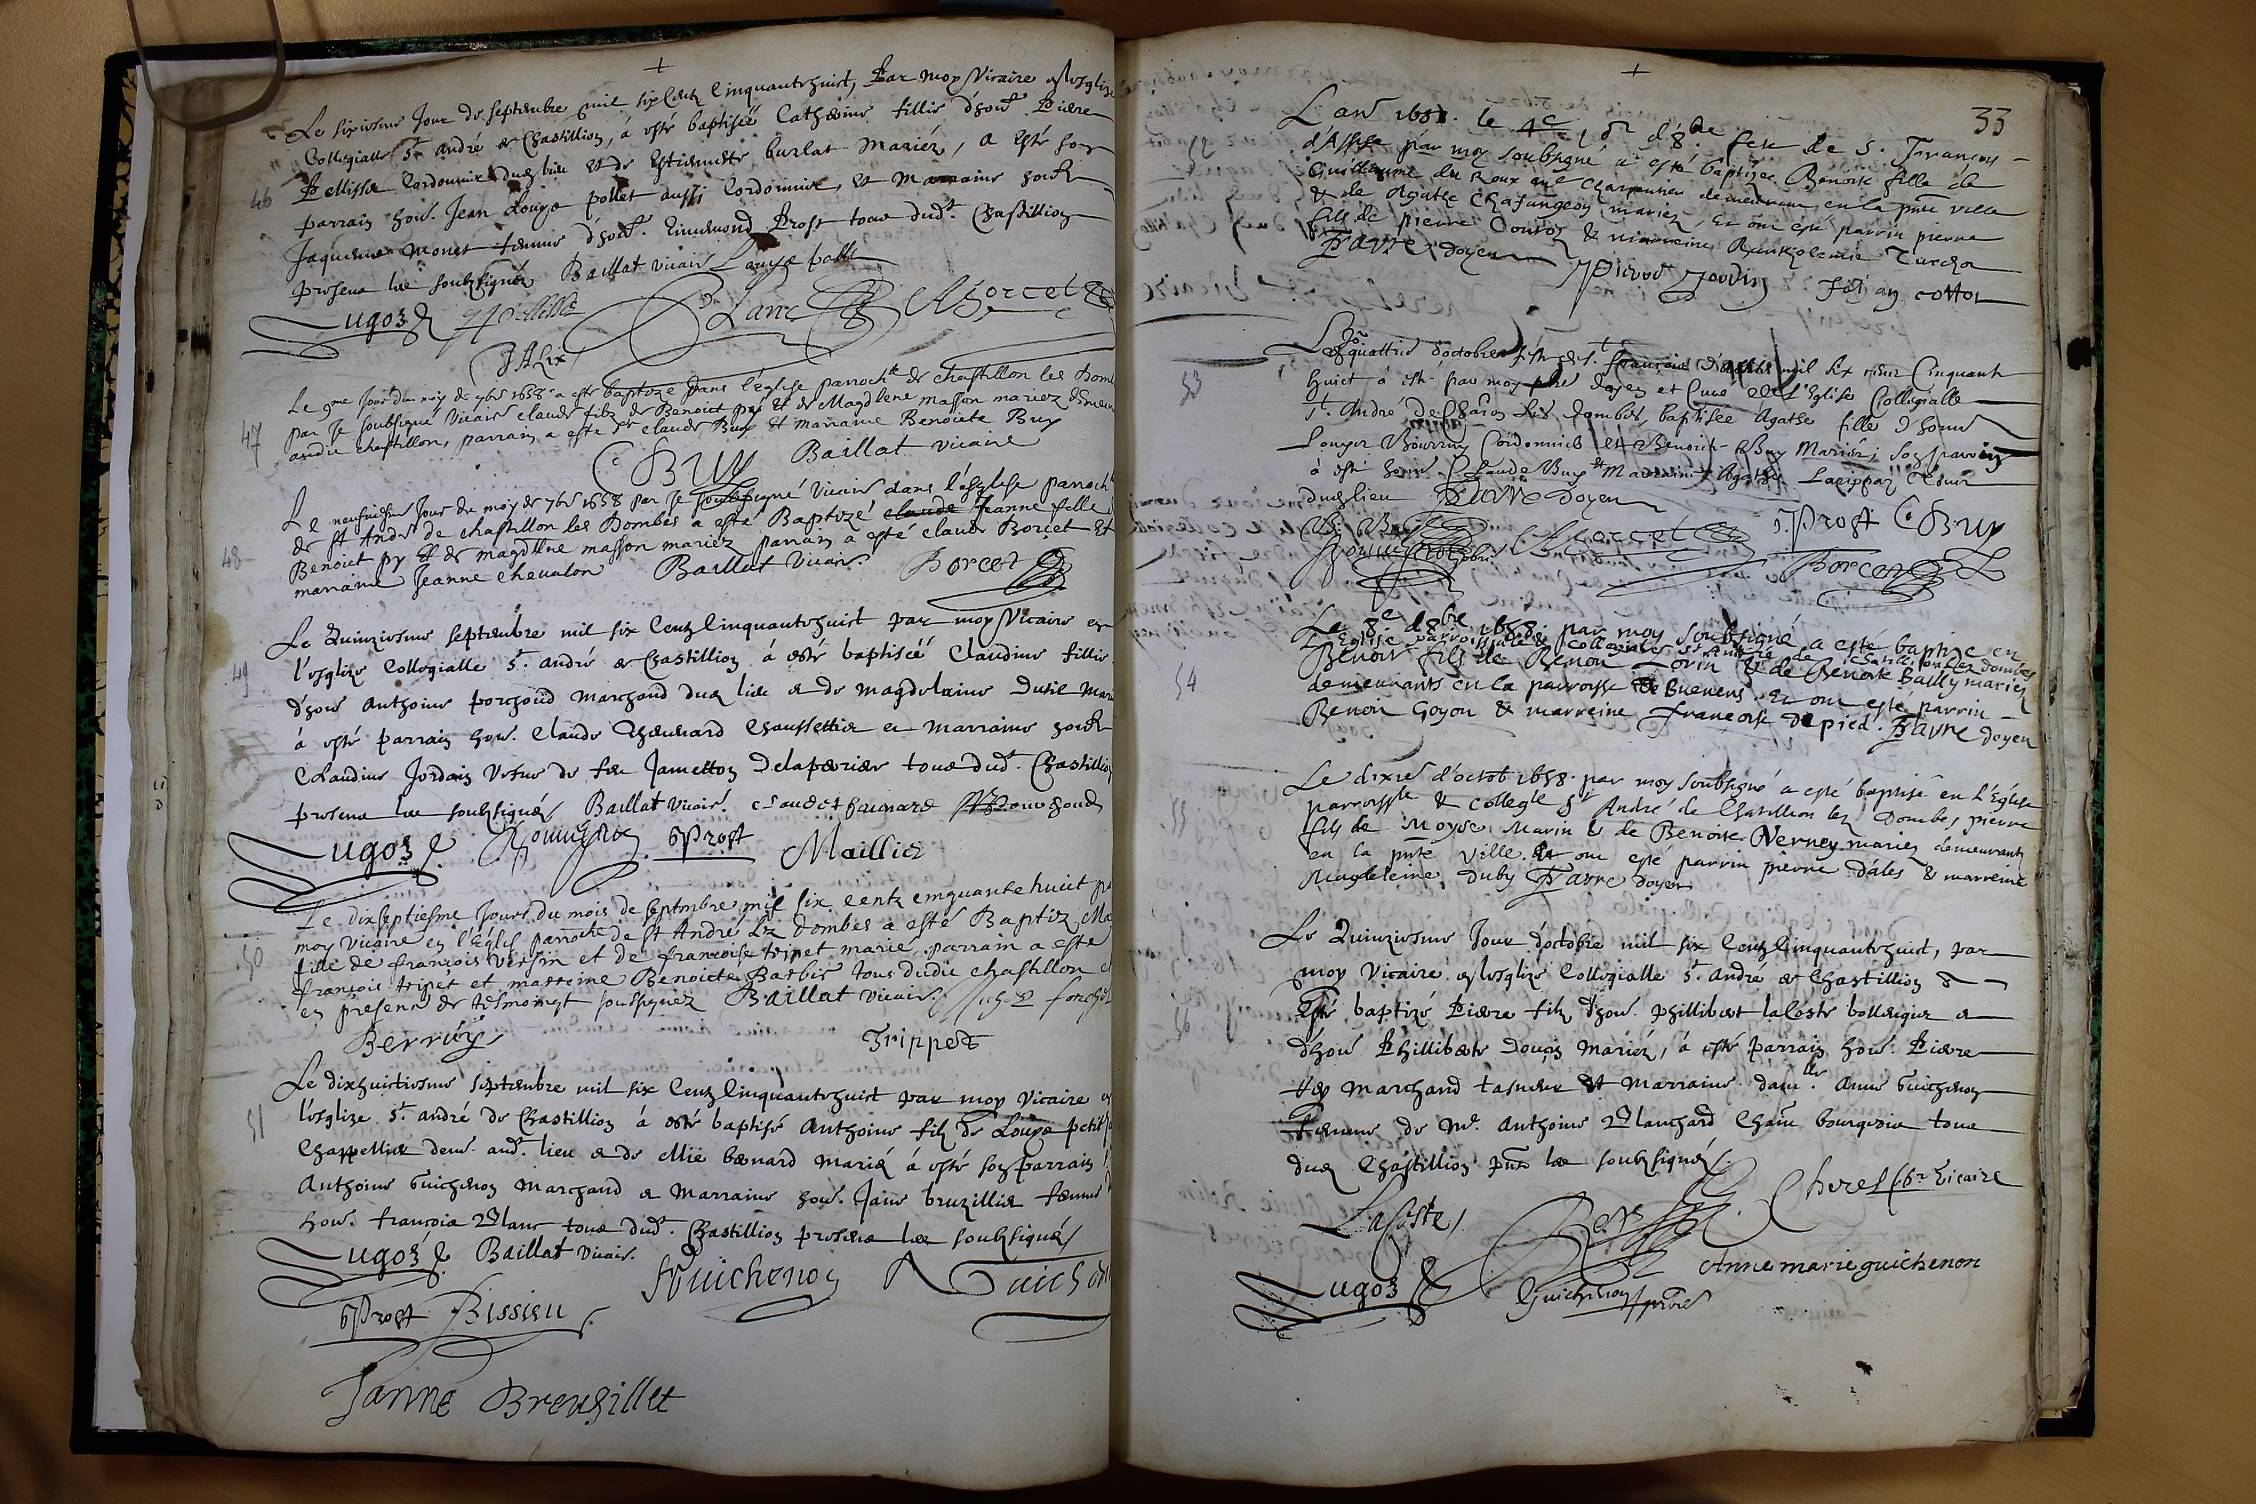 +
Le sixiesme Jour de septembre mil six Centz Cinquantehuict, Par moy Vicaire en l'esglize
Collegialle St André de Chastillion, à esté baptiséé Catherine fillie d'hon. Pierre
46
Pellissie Cordonnier dud lieu et de Estiennette burlat Mariéz, a Esté son
parrain hon. Jean Louye pollet aussi Cordonnier, et Marraine hon
Jaquema Monet femme d'hon. Eimemond Prost tous dudt Chastillion
presens les soubzsignés Baillat vicaire Louye pollet
Lugoz Pellissie P Lanc ABorcet
J Alix
47
Le 9me jour du moy de 7bre 1658 a esté baptizé dans l'église parrochle de chastillon les Dombes
par je soubsigné Vicaire claude filz de Benoict py et de Magdlene masson mariez demeurant
audit chastillon, parrain a esté Sr claude Buy et maraine Benoiete Buy
C BUY Baillat vicaire
48
Le neufviesme Jour du moy de 7bre 1658 par je soubsigné Vicaire dans l'église parrochle
de St André de chastillon les Dombes a esté Baptizé claude Jeanne fille d
Benoict py et de magdlene masson mariez parrain a esté claude Borcet et
maraine Jeanne chevalon Baillat Vicaire. Borcet
49
Le Quinziesme septembre mil six Centz Cinquantehuict par moy Vicaire en
l'esglize Collegialle St André de Chastillion à esté baptiséé Claudine fillie
d'hon Anthoine porchoud Marchand dud lieu et de Magdelaine Dutie Mari
à esté parrain hon. Claude Thennard Chaussettier et Marraine hon
Claudine Jordain Vefve de feu Jametton Delaperiere tous dudt Chastillion
presens les soubzsignés Baillat vicaire. claude thennard Pourchoud
Lugoz Prost Maillie
50
Le dixseptiesme Jours du mois de septmbre mil six centz cinquante huict par
moy vicaire en l'église parroche de St André Lez Dombes a esté Baptiz Ma
fille de françois versin et de francoise tripet marié, parrain a esté
françois tripet et marreine Benoicte Barbié tous dudit chastillon et
en presence de tesmoingt soubsignez Baillat vicaire.
Berruÿ Trippet
51
Le dixhuictiesme septembre mil six Centz Cinquantehuict par moy Vicaire en
l'esglize St André de Chastillion à esté baptisé Anthoine filz de Louye petit
Chappellier demt audt lieu et de Mie benard Mariéz à esté son parrain
Anthoine Guichenon Marchand et Marraine hon. Jane bruzillier femme d
hon. françois Blanc tous dudt Chastillion presens les soubzsignés
Lugoz Baillat vicaire.
Guichenon Guichenon
Prost Bissieu
Janne Breuzillet
+
33
L'an 1658. le 4e 1 de 8bre feste de S. François
d'Assise par moy soubsigné a esté baptizée Benoite fille de
Guillaume du Roux mtre Charpentier demeurant en la pnte ville
& de Agathe Chafangeon mariez, Et ont esté parrin pierre
fils de pierre Jouvin & marreine Barthelemie Tarcho
Favre doyen Pierre Jouvin fét an cotton
53
Le quattrie d'octobre feste de St françois d'assise mil six cens Cinquante
huict à esté par moy pbre doyen et Curé de l'Eglise Collegialle
St. André de Chaôn les dombes, baptisée Agathe fille d'honn
Louyer Bourruy Cordonnier et Benoite Buy Mariéz, son parrain
à esté honn Claude Buy et Marraine Agathe
dud lieu Favre doyen
Borcet J. Prost C BUy
Borcet
54
Le 8e d'8bre 1658 par moy soubsigné a esté baptizé en
l'Eglise parroissiale & collegiale St André de Chatillon les dombes
Benoit fils de Benoit Lorin & de Benoite Bailly mariez
demeurants en la parroisse de Buenens. Et ont esté parrin
Benoit Goyon & marreine françoise depied. Favre doyen
Le dixie d'octob 1658. par moy soubsigné a esté baptisé en l'Eglise
parroissle & collegle St André de Chatillon lez Dombes, pierre
fils de Moyse Marin & de Benoite Verney mariez demeurants
en la pnte ville. Et ont esté parrin pierre d'ales & marreine
Magdeleine duby Favre doyen
Le Quinziesme Jour d'octobre mil six Centz Cinquantehuict, par
moy Vicaire en l'esglize Collegialle St André de Chastillion à
Esté baptizé Pierre filz d'hon. Phillibert laCoste bollengier et
d'hon Phillibete Doucin Mariéz, à esté parrain hon. Pierre
Rey Marchand tasneur Et Marraine damlle Anne Guichenon
femme de Mr. Anthoine Blanchard Chain bourgeois tous
dud Chastillion pnts les soubzsignés.
Cherel pbr Vicaire
Lacoste
Anne marie guichenon
Lugoz Guichenon